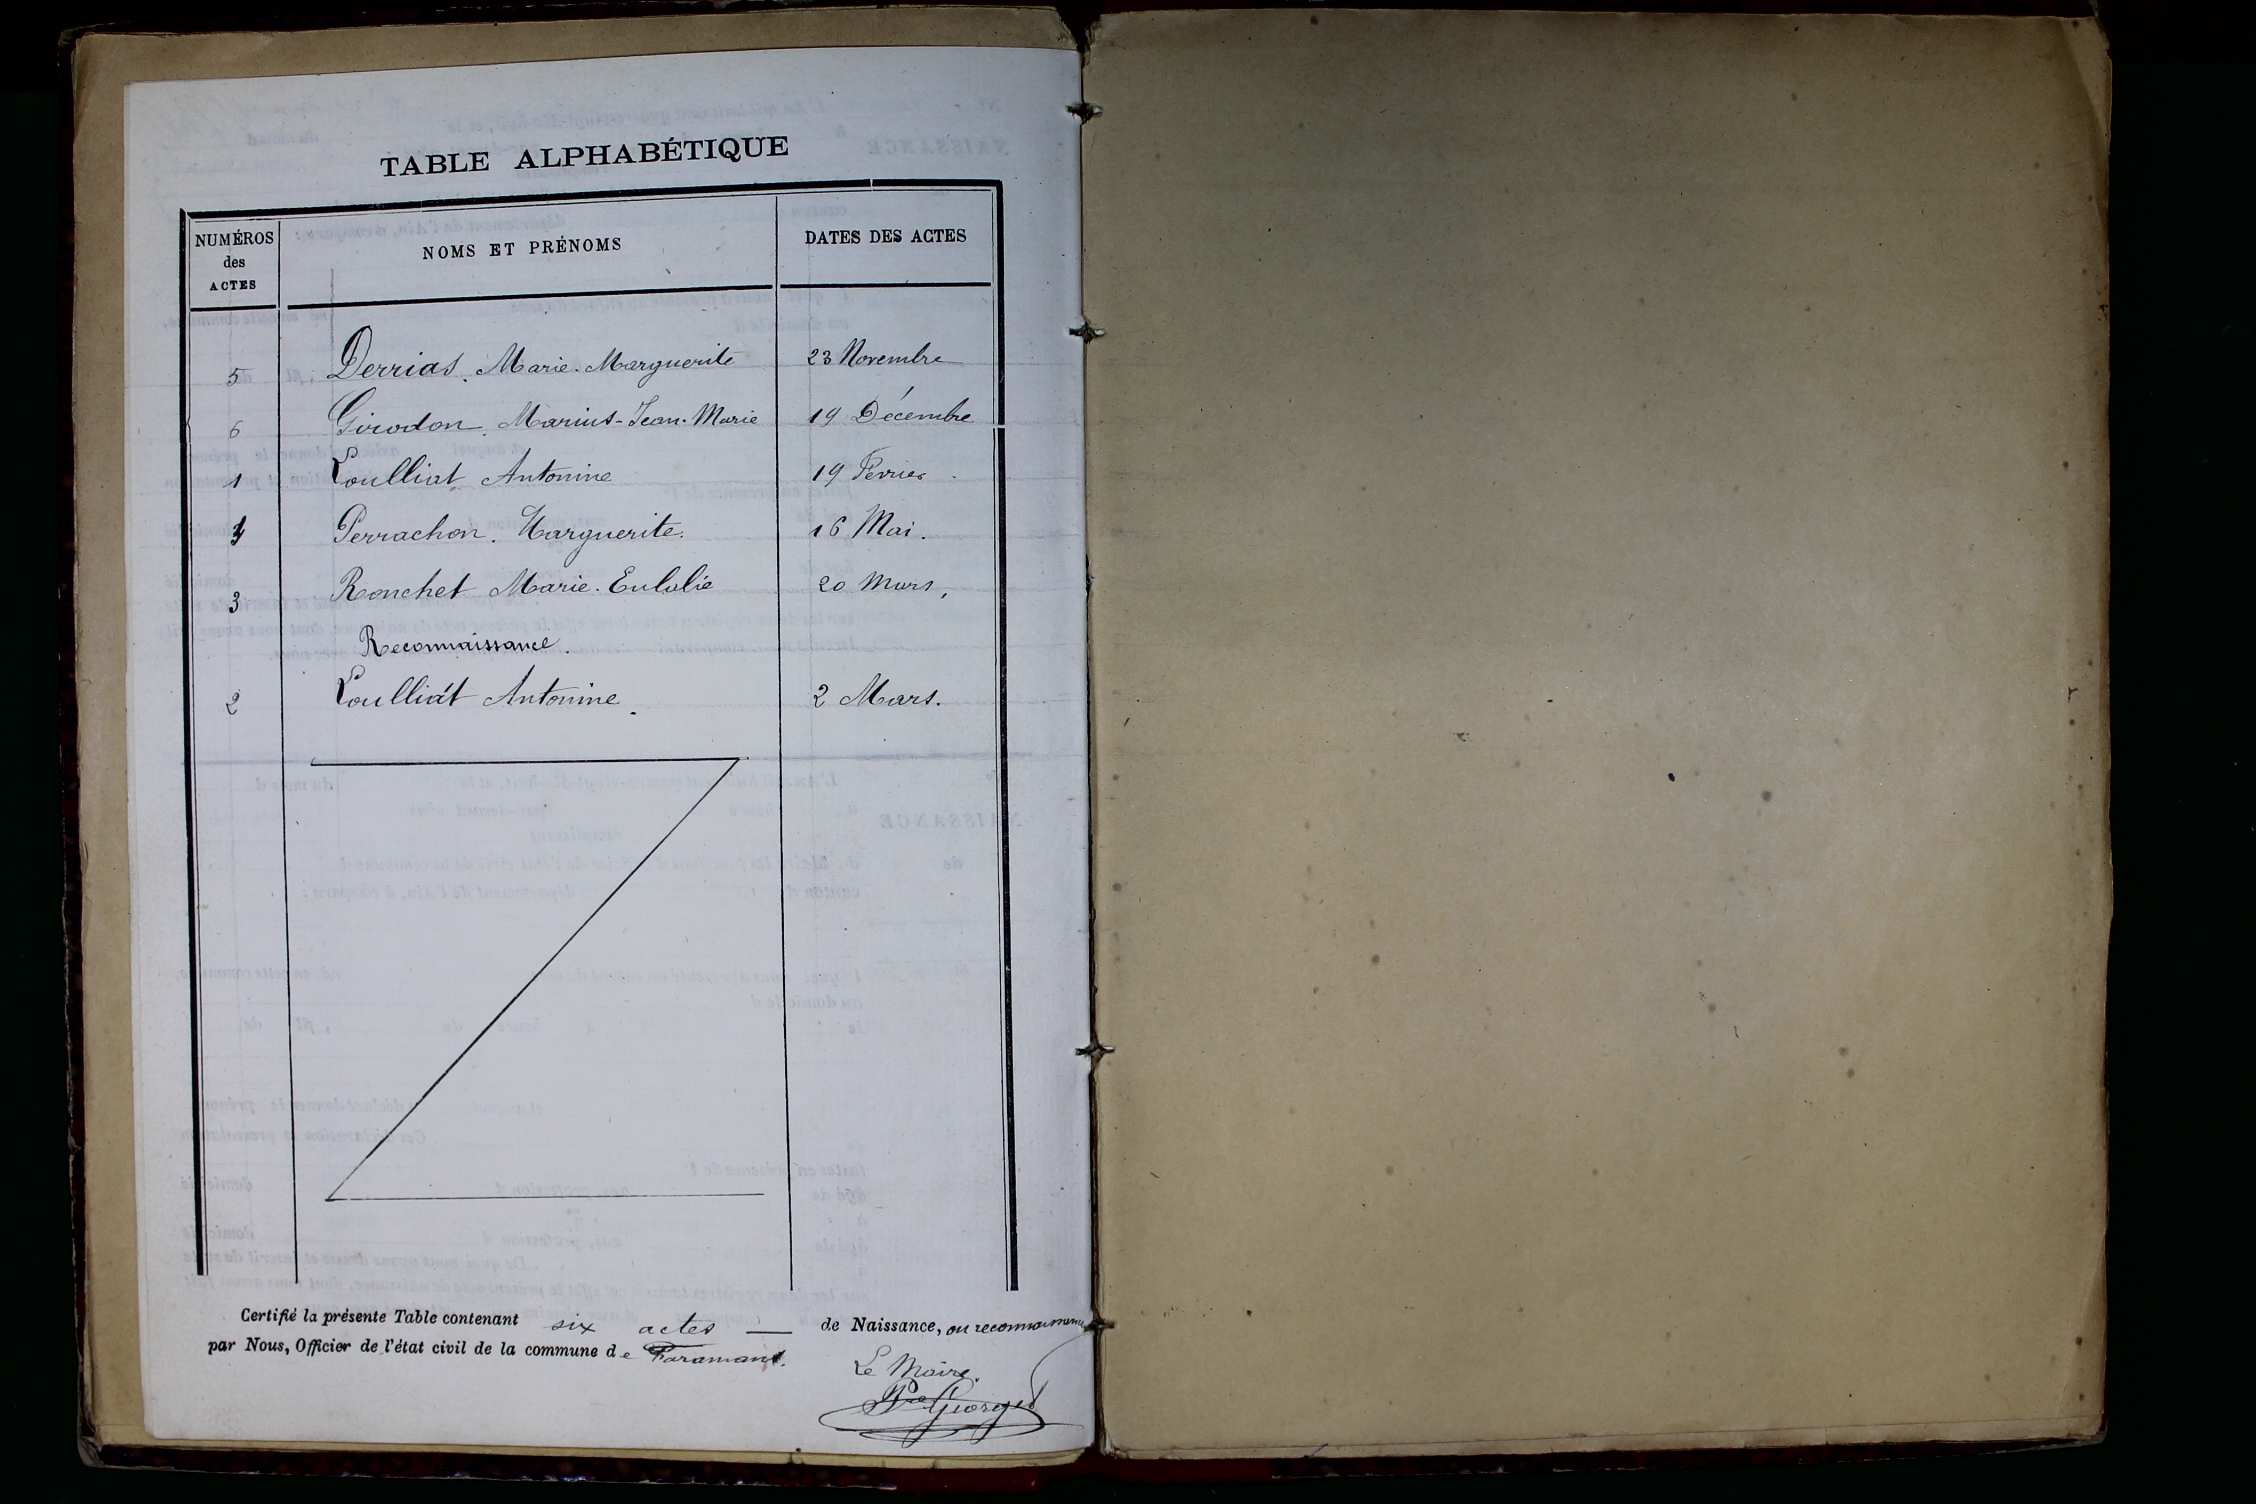 TABLE ALPHABÉTIQUE
NUMÉROS des ACTES NOMS ET PRÉNOMS DATES DES ACTES
5 Derrias. Marie. Marguerite 23 Novembre
6 Girodon. Marius-Jean. Marie 19 Décembre
1 Loulliat Antonine 19 Fevrier
4 Perrachon. Marguerite. 16 Mai.
3 Ronchet Marie. Eulalie 20 Mars,
Reconnaissance.
2 Loulliat Antonine. 2 Mars.
Certifié la présente Table contenant six actes — de Naissance, ou reconnaissance
par Nous, Officier de l'état civil de la commune de Faramans.
Le Maire.
Georges